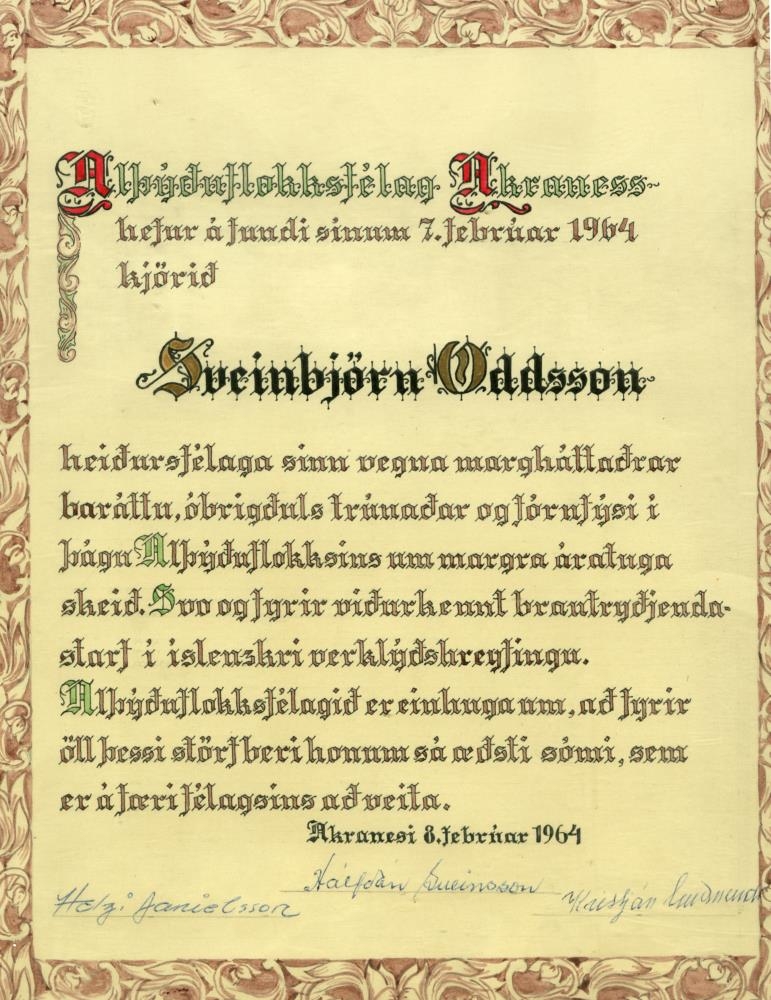 Alþýðuflokksfélag Akraness
hefur á fundi sinum 7. febrúar 1964
kjörið
Sveinbjörn Oddsson
heiðursfélaga sinn vegna margháttaðrar
baráttu, óbrigðuls trúnaðar og fórnfýsi i
þágu Alþýðuflokksins um margra áratuga
skeið. Svo og fyrir viðurkennt brautryðjenda-
starf i islenzkri verklýðshreyfingu.
Alþýðuflokksfélagið er einhuga um, að fyrir
öll þessi störf beri honum sá æðsti sómi, sem
er á færi félagsins að veita.
Akranesi 8. febrúar 1964
Hálfdán Sveinsson
Helgi Daníelsson Kristján Guðmunds